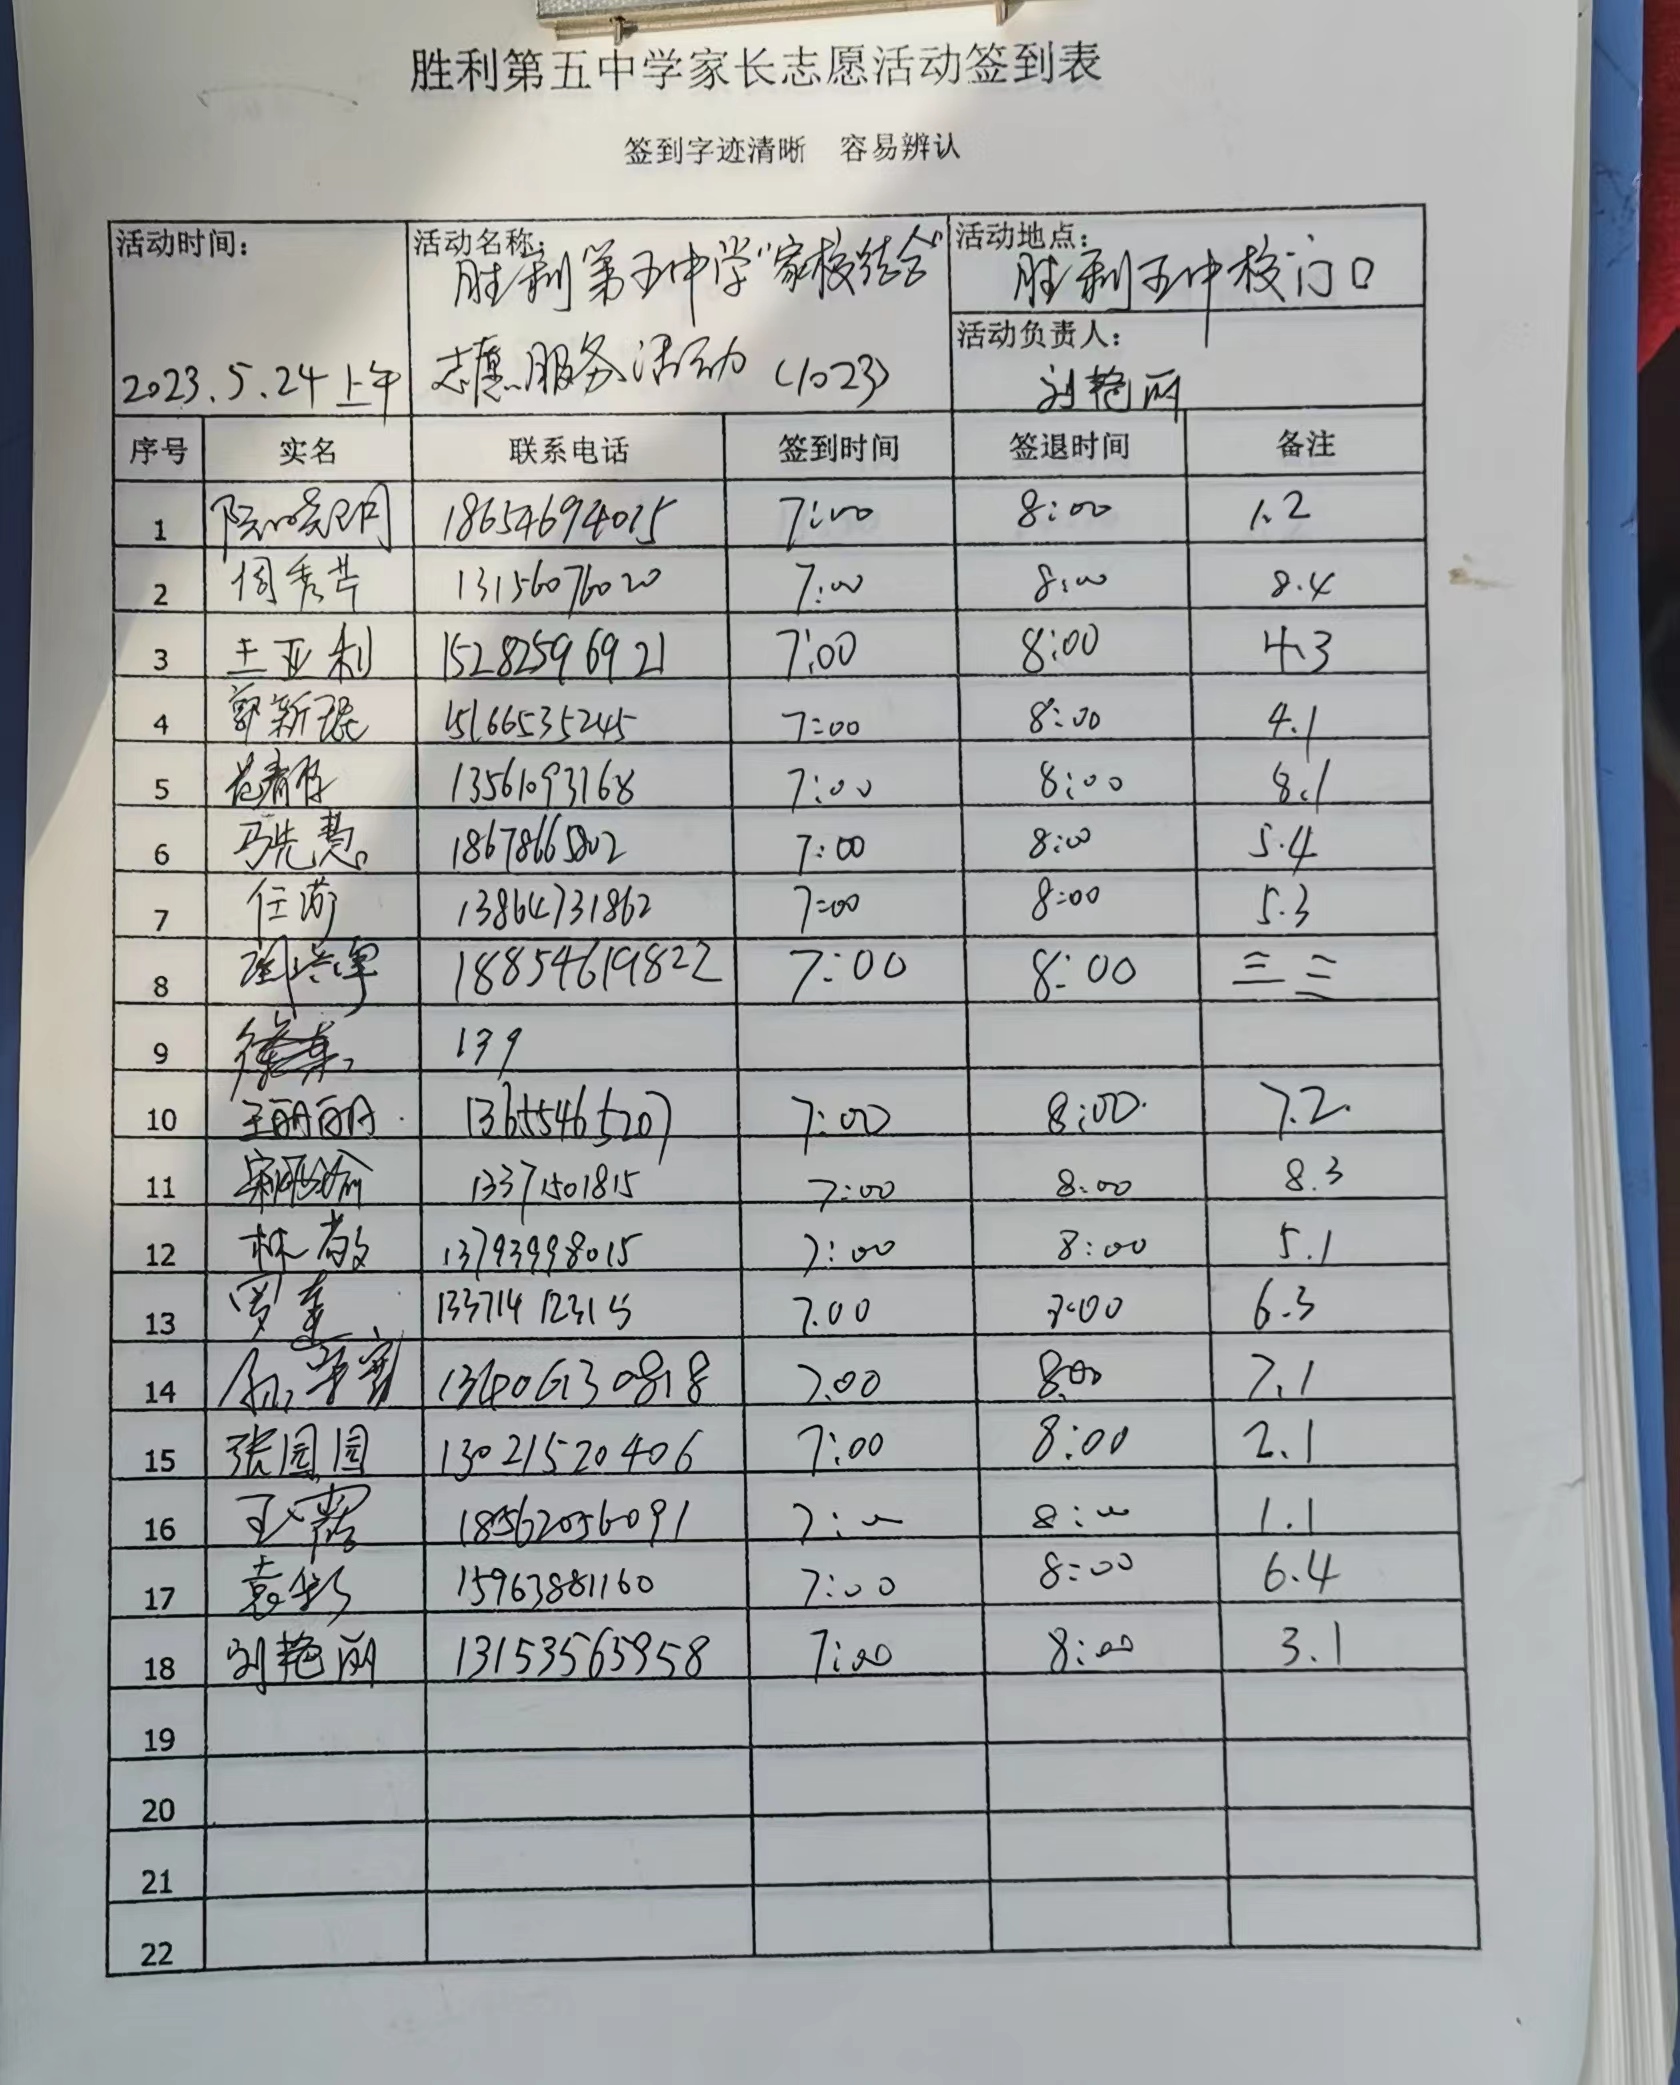 胜利第五中学家长志愿活动签到表
签到字迹清晰 容易辨认
活动时间: 活动名称: 活动地点:
胜利第五中学"家校结合" 胜利五中校门口
活动负责人:
2023.5.24上午 志愿服务活动 (1023) 刘艳丽
序号 实名 联系电话 签到时间 签退时间 备注
1 18654694015 7:00 8:00 1.2
2 周秀芹 13156076020 7:00 8:00 8.4
3 王亚利 15282596921 7:00 8:00 4.3
4 郭新琨 15166535245 7:00 8:00 4.1
5 13561093168 7:00 8:00 8.1
6 马先慧 18678665802 7:00 8:00 5.4
7 任 13864731862 7:00 8:00 5.3
8 18854619822 7:00 8:00 三 三
9 139
10 王丽丽 13655465207 7:00 8:00 7.2
11 13371501815 7:00 8:00 8.3
12 林敬 13793998015 7:00 8:00 5.1
13 13371412315 7.00 8:00 6.3
14 13406130818 7.00 8:00 7.1
15 张园园 13021520406 7:00 8:00 2.1
16 王露 18562056091 7:00 8:00 1.1
17 袁彩 15963881160 7:00 8:00 6.4
18 刘艳丽 13153565958 7:00 8:00 3.1
19
20
21
22